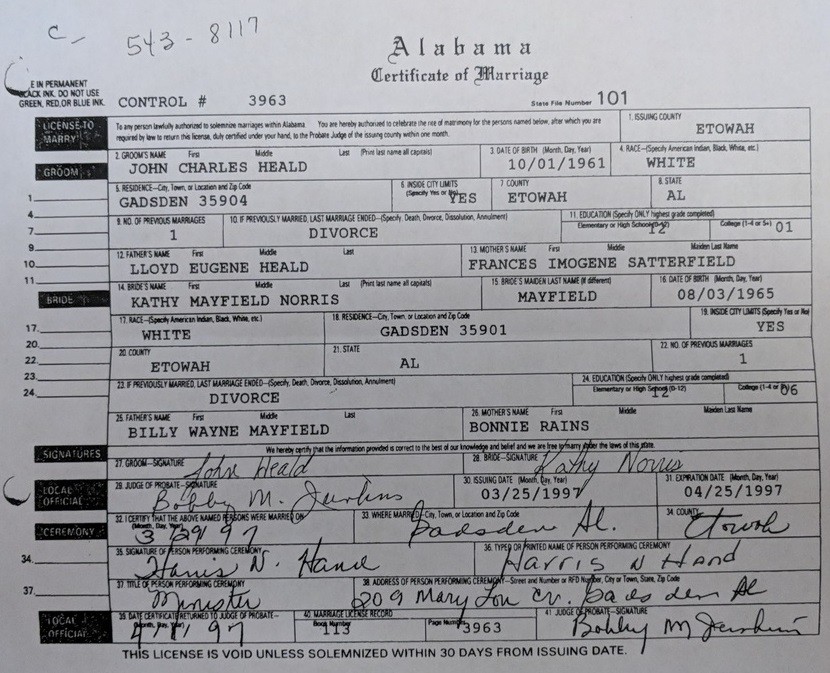 C- 543-8117
Alabama
Certificate of Marriage
E IN PERMANENT
BLACK INK. DO NOT USE
GREEN, RED, OR BLUE INK.
CONTROL # 3963
State File Number 101
LICENSE TO MARRY
To any person lawfully authorized to solemnize marriages within Alabama. You are hereby authorized to celebrate the rite of matrimony for the persons named below, after which you are
required by law to return this license, duly certified under your hand, to the Probate Judge of the issuing county within one month.
1. ISSUING COUNTY
ETOWAH
GROOM
2. GROOM'S NAME First Middle Last (Print last name all capitals)
JOHN CHARLES HEALD
3. DATE OF BIRTH (Month, Day, Year)
10/01/1961
4. RACE—(Specify American Indian, Black, White, etc.)
WHITE
5. RESIDENCE—City, Town, or Location and Zip Code
GADSDEN 35904
6. INSIDE CITY LIMITS
(Specify Yes or No)
YES
7. COUNTY
ETOWAH
8. STATE
AL
9. NO. OF PREVIOUS MARRIAGES
1
10. IF PREVIOUSLY MARRIED, LAST MARRIAGE ENDED—(Specify, Death, Divorce, Dissolution, Annulment)
DIVORCE
11. EDUCATION (Specify ONLY highest grade completed)
Elementary or High School (0-12) 12
College (1-4 or 5+) 01
12. FATHER'S NAME First Middle Last
LLOYD EUGENE HEALD
13. MOTHER'S NAME First Middle Maiden Last Name
FRANCES IMOGENE SATTERFIELD
BRIDE
14. BRIDE'S NAME First Middle Last (Print last name all capitals)
KATHY MAYFIELD NORRIS
15. BRIDE'S MAIDEN LAST NAME (If different)
MAYFIELD
16. DATE OF BIRTH (Month, Day, Year)
08/03/1965
17. RACE—(Specify American Indian, Black, White, etc.)
WHITE
18. RESIDENCE—City, Town, or Location and Zip Code
GADSDEN 35901
19. INSIDE CITY LIMITS (Specify Yes or No)
YES
20. COUNTY
ETOWAH
21. STATE
AL
22. NO. OF PREVIOUS MARRIAGES
1
23. IF PREVIOUSLY MARRIED, LAST MARRIAGE ENDED—(Specify, Death, Divorce, Dissolution, Annulment)
DIVORCE
24. EDUCATION (Specify ONLY highest grade completed)
Elementary or High School (0-12) 12
College (1-4 or 5+) 06
25. FATHER'S NAME First Middle Last
BILLY WAYNE MAYFIELD
26. MOTHER'S NAME First Middle Maiden Last Name
BONNIE RAINS
SIGNATURES
We hereby certify that the information provided is correct to the best of our knowledge and belief and we are free to marry under the laws of this state.
27. GROOM—SIGNATURE
John Heald
28. BRIDE—SIGNATURE
Kathy Norris
LOCAL OFFICIAL
29. JUDGE OF PROBATE—SIGNATURE
Bobby M. Junkins
30. ISSUING DATE (Month, Day, Year)
03/25/1997
31. EXPIRATION DATE (Month, Day, Year)
04/25/1997
CEREMONY
32. I CERTIFY THAT THE ABOVE NAMED PERSONS WERE MARRIED ON
(Month, Day, Year)
3/29/97
33. WHERE MARRIED—City, Town, or Location and Zip Code
Gadsden Al.
34. COUNTY
Etowah
35. SIGNATURE OF PERSON PERFORMING CEREMONY
Harris N. Hand
36. TYPED OR PRINTED NAME OF PERSON PERFORMING CEREMONY
Harris N Hand
37. TITLE OF PERSON PERFORMING CEREMONY
Minister
38. ADDRESS OF PERSON PERFORMING CEREMONY—Street and Number or RFD Number, City or Town, State, Zip Code
209 Mary Lou Cr. Gadsden Al
LOCAL OFFICIAL
39. DATE CERTIFICATE RETURNED TO JUDGE OF PROBATE—
(Month, Day, Year)
4/1/97
40. MARRIAGE LICENSE RECORD
Book Number 113
Page Number 3963
41. JUDGE OF PROBATE—SIGNATURE
Bobby M Junkins
1.
4.
7.
9.
10.
11.
17.
20.
22.
23.
24.
34.
37.
THIS LICENSE IS VOID UNLESS SOLEMNIZED WITHIN 30 DAYS FROM ISSUING DATE.